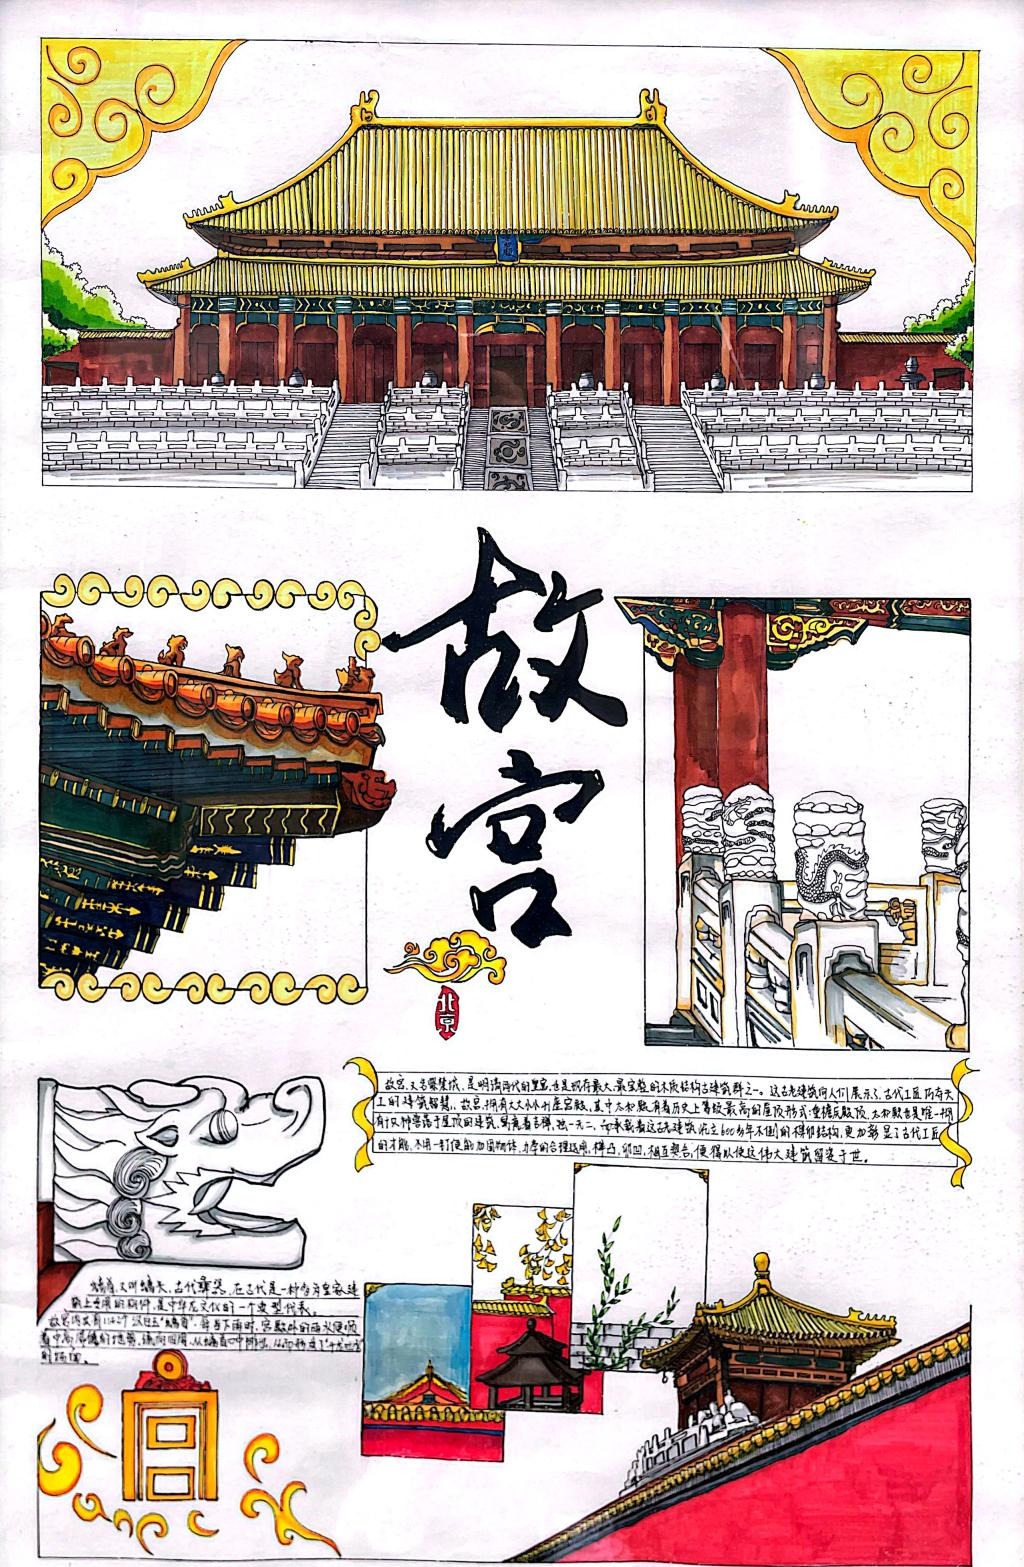 故
宫
北京
故宫,又名紫禁城,是明清两代的皇宫,也是现存最大、最完整的木质结构古建筑群之一。这古老建筑向人们展示了古代工匠所有天
工的建筑智慧。故宫,拥有大大小小座宫殿,其中太和殿有着历史上等级最高的屋顶形式:重檐庑殿顶,太和殿也是唯一拥
有十只神兽蹲于屋顶的建筑,寓意着吉祥,独一无二,而承载着这古老建筑屹立600多年不倒的榫卯结构,更加彰显了古代工匠
的才能,不用一钉便能加固物体,力学的合理运用,榫凸,卯凹,相互契合,使得以使这伟大建筑留芳于世。
螭首,又叫螭头,古代彝器,在古代是一种皇家建
上使用的构件,是中华龙文化的一个典型代表。
故宫内共有1142个汉白玉"螭首",每当下雨时,宫殿外的雨水便顺
着中高 的地势,流向四周,从螭首口中排出,从而形成了"千龙出水"
的场面。
宫